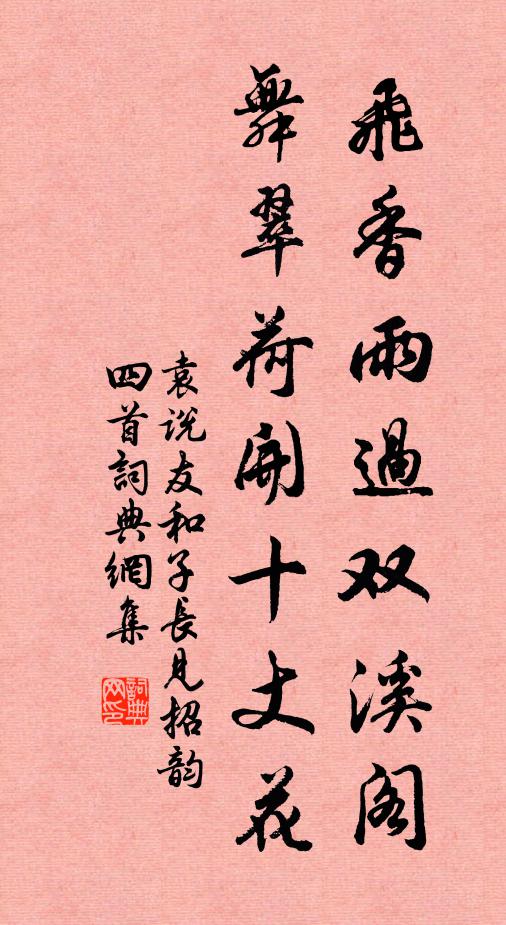 飛香雨過双溪阁
舞翠荷開十丈花
袁说友和子長見招韵
四首詞典網集
詞典网印